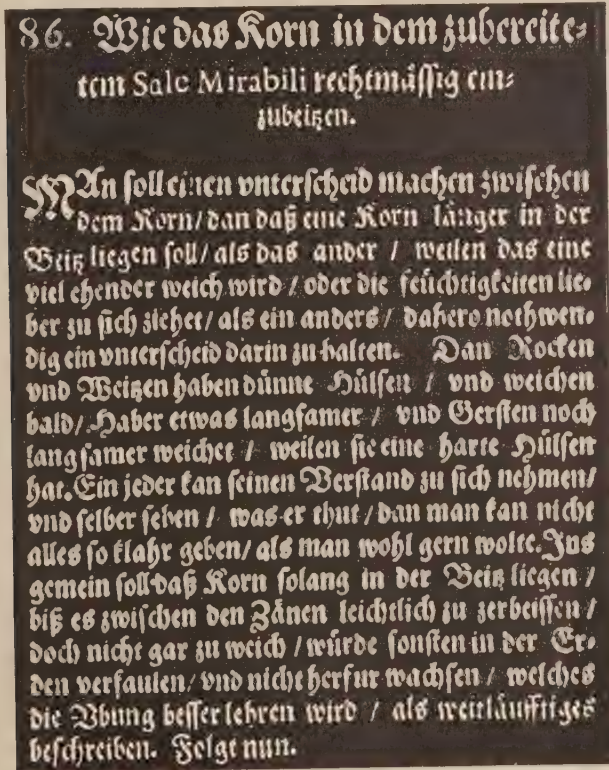 86. Wie das Korn in dem zubereite⸗
tem Sale Mirabili rechtmässig ein⸗
zubeitzen.
MAn soll einen vnterscheid machen zwischen
dem Korn/ dan daß eine Korn länger in der
Beitz liegen soll/ als das ander / weilen das eine
viel ehender weich wird / oder die feüchtigkeiten lie⸗
ber zu sich ziehet/ als ein anders/ dahero nothwen⸗
dig ein vnterscheid darin zu halten. Dan Rocken
vnd Weitzen haben dünne Hülsen / vnd weichen
bald/ Haber etwas langsamer / vnd Gersten noch
langsamer weichet / weilen sie eine harte Hülsen
hat. Ein jeder kan seinen Verstand zu sich nehmen/
vnd selber sehen / was er thut / dan man kan nicht
alles so klahr geben/ als man wohl gern wolte. Ins
gemein soll daß Korn solang in der Beitz liegen /
biß es zwischen den Zänen leichtlich zu zerbeissen /
doch nicht gar zu weich / würde sonsten in der Er⸗
den verfaulen/ vnd nicht herfur wachsen / welches
die Vbung besser lehren wird / als weitläufftiges
beschreiben. Folgt nun.